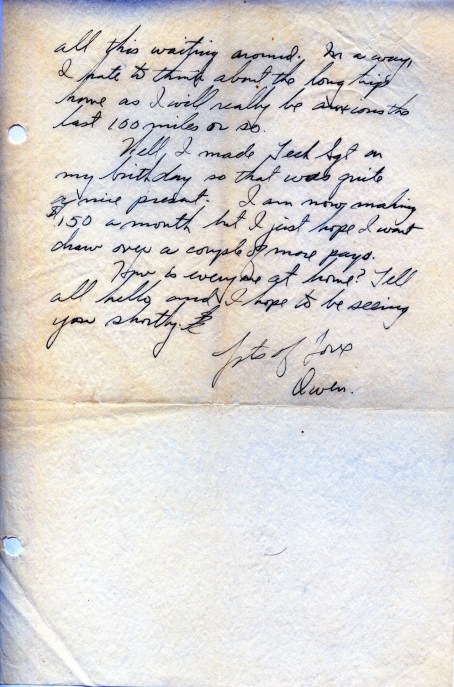 all this waiting around. In a way,
I hate to think about the long trip
home as I will really be anxious the
last 100 miles or so.
Well, I made Tech Sgt on
my birthday so that was quite
a nice present. I am now making
$150 a month but I just hope I wont
draw over a couple of more pays.
How is everyone at home? Tell
all hello, and I hope to be seeing
you shortly.
Lots of Love
Owen.